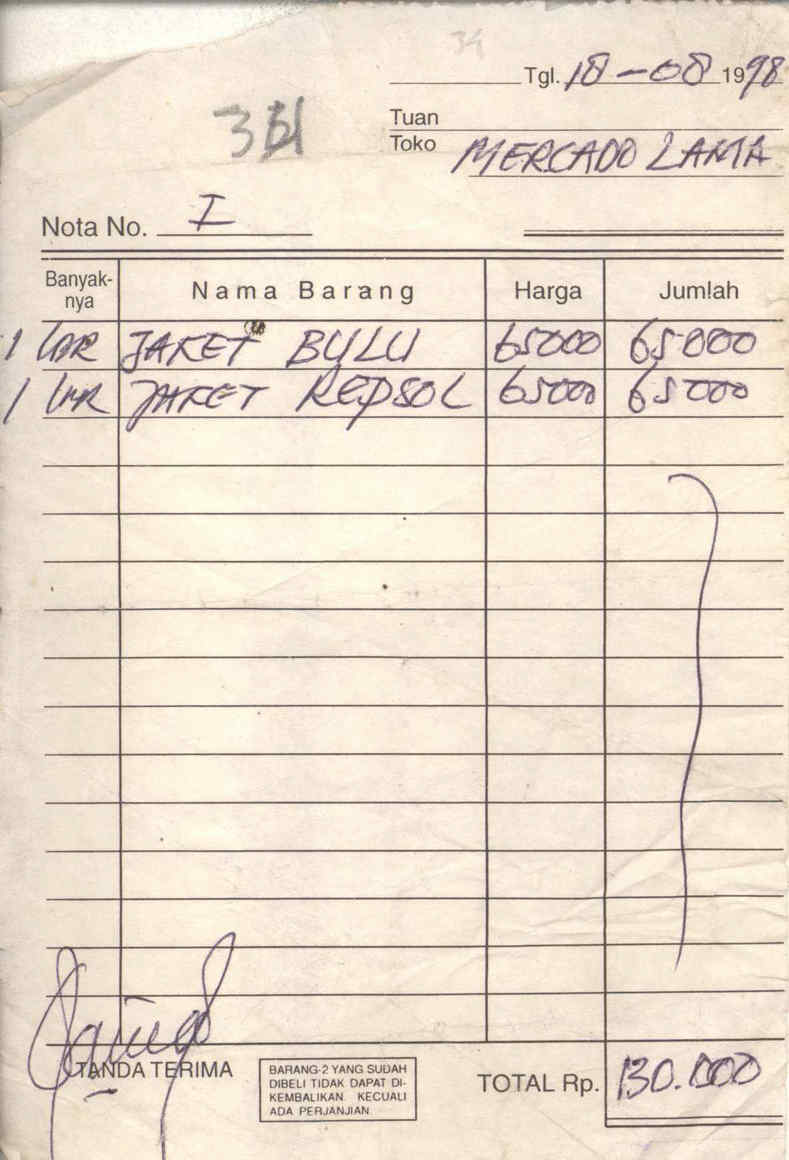 34
Tgl. 18-08 1998
Tuan
Toko MERCADO LAMA
Nota No. I
Banyak-nya Nama Barang Harga Jumlah
1 LBR JAKET BULU 65000 65000
1 LBR JAKET REPSOL 65000 65000
TANDA TERIMA
BARANG-2 YANG SUDAH
DIBELI TIDAK DAPAT DI-
KEMBALIKAN. KECUALI
ADA PERJANJIAN.
TOTAL Rp. 130.000